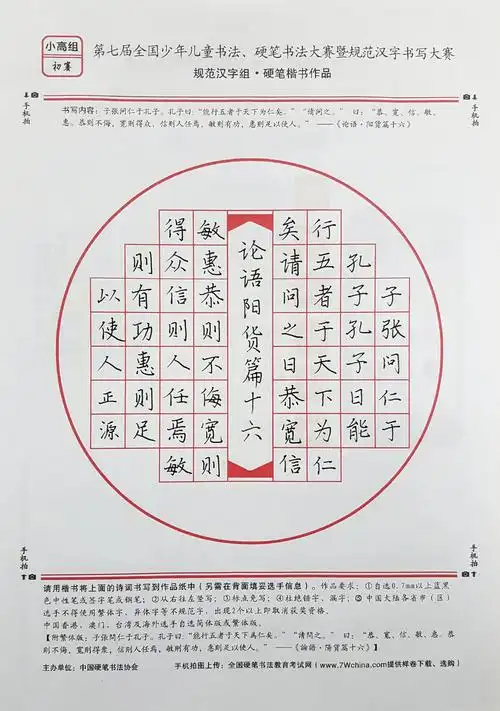 小高组
初赛
第七届全国少年儿童书法、硬笔书法大赛暨规范汉字书写大赛
规范汉字组·硬笔楷书作品
手机拍
手机拍
书写内容：子张问仁于孔子。孔子曰：“能行五者于天下为仁矣。”“请问之。” 曰：“恭、宽、信、敏、
惠。恭则不侮，宽则得众，信则人任焉，敏则有功，惠则足以使人。” ——《论语·阳货篇十六》
子张问仁于
孔子孔子曰能
行五者于天下为仁
矣请问之曰恭宽信
论语阳货篇十六
敏惠恭则不侮宽则
得众信则人任焉敏
则有功惠则足
以使人正源
手机拍
手机拍
请用楷书将上面的诗词书写到作品纸中（另需在背面填妥选手信息）。作品要求：①自选0.7mm以上蓝黑
色中性笔或签字笔或钢笔；②从右往左竖写；③标点免写；④杜绝错字、漏字；⑤中国大陆各省市（区）
选手不得使用繁体字、异体字等不规范字，出现2个以上即取消获奖资格。
中国香港、澳门、台湾及海外选手自选简体版或繁体版。
【附繁体版：子張問仁于孔子。孔子曰：“能行五者于天下為仁矣。” “請問之。” 曰：“恭、寬、信、敏、惠。恭
則不侮，寬則得衆，信則人任焉，敏則有功，惠則足以使人。” ——《論語·陽貨篇十六》】
主办单位：中国硬笔书法协会 手机拍图上传：全国硬笔书法教育考试网（www.7Wchina.com提供样卷下载、选购）